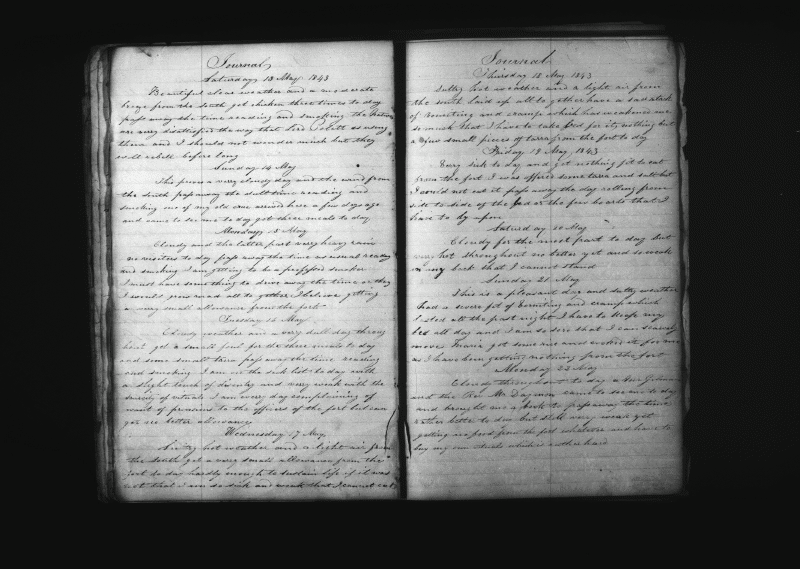 Journal
Saturday 13 May 1843
Beautiful clear weather and a moderate
breeze from the South got chicken three times to day
pass away the time reading and smoking the natives
are very disatisfied the way that Lord Polett is using
them and I should not wonder much but they
will rebell before long
Sunday 14 May
This proves a very cloudy day and the wind from
the South passaway the dull time reading and
smoking one of my old one arrived here a few days ago
and came to see me to day got three meals to day
Monday 15 May
Cloudy and the latter part very heavy rain
no visitors to day pass away the time as usual reading
and smoking I am getting to be a proffess smoker
I must have something to drive away the time or they
I would grow mad all to gether I believe getting
a very small allowance from the fort
Tuesday 16 May
Cloudy weather and a very dull day through
hout got a small for the three meals to day
and some small tarra pass away the time reading
and smoking I am on the sick list to day with
a slight touch of and very weak with the
scarcity of vituals I am every day complaining of
want of provisions to the officers of the fort but can
get no better allowance
Wednesday 17 May
hot weather and a light air from
the South got a very small allowance from the
fort to day hardly enough to sustain life if it was
not that I am so sick and weak that I cannot eat
Journal
Thursday 18 May 1843
Sultry hot weather and a light air from
the South laid up all to gether have a bad attack
of vomiting and cramp which has weakened me
so much that I have to take bed for it, nothing but
a few small pieces of tarra from the fort to day
Friday 19 May 1843
Very sick to day and got nothing fit to eat
from the fort I was offered some tarra and salt but
I could not eat it pass away the day rolling from
side to side of the bed or the few boards that I
have to ly upon
Saturday 20 May
Cloudy for the most part to day but
very hot throughout no better yet and so weak
in my back that I cannot stand
Sunday 21 May
This is a pleasant day and sultry weather
had a severe fit of vomiting and cramp which
lasted all the past night I have to keep my
bed all day and I am so sore that I can scarsely
move Maria got some and cooked it for me
as I have been getting nothing from the fort
Monday 22 May
Cloudy throughout to day a
and the Rev Mr came to see me to day
and brought me a book to pass away the time
rather better to day but still very weak yet
getting no food from the fort whatever and have to
buy my own which is rather hard